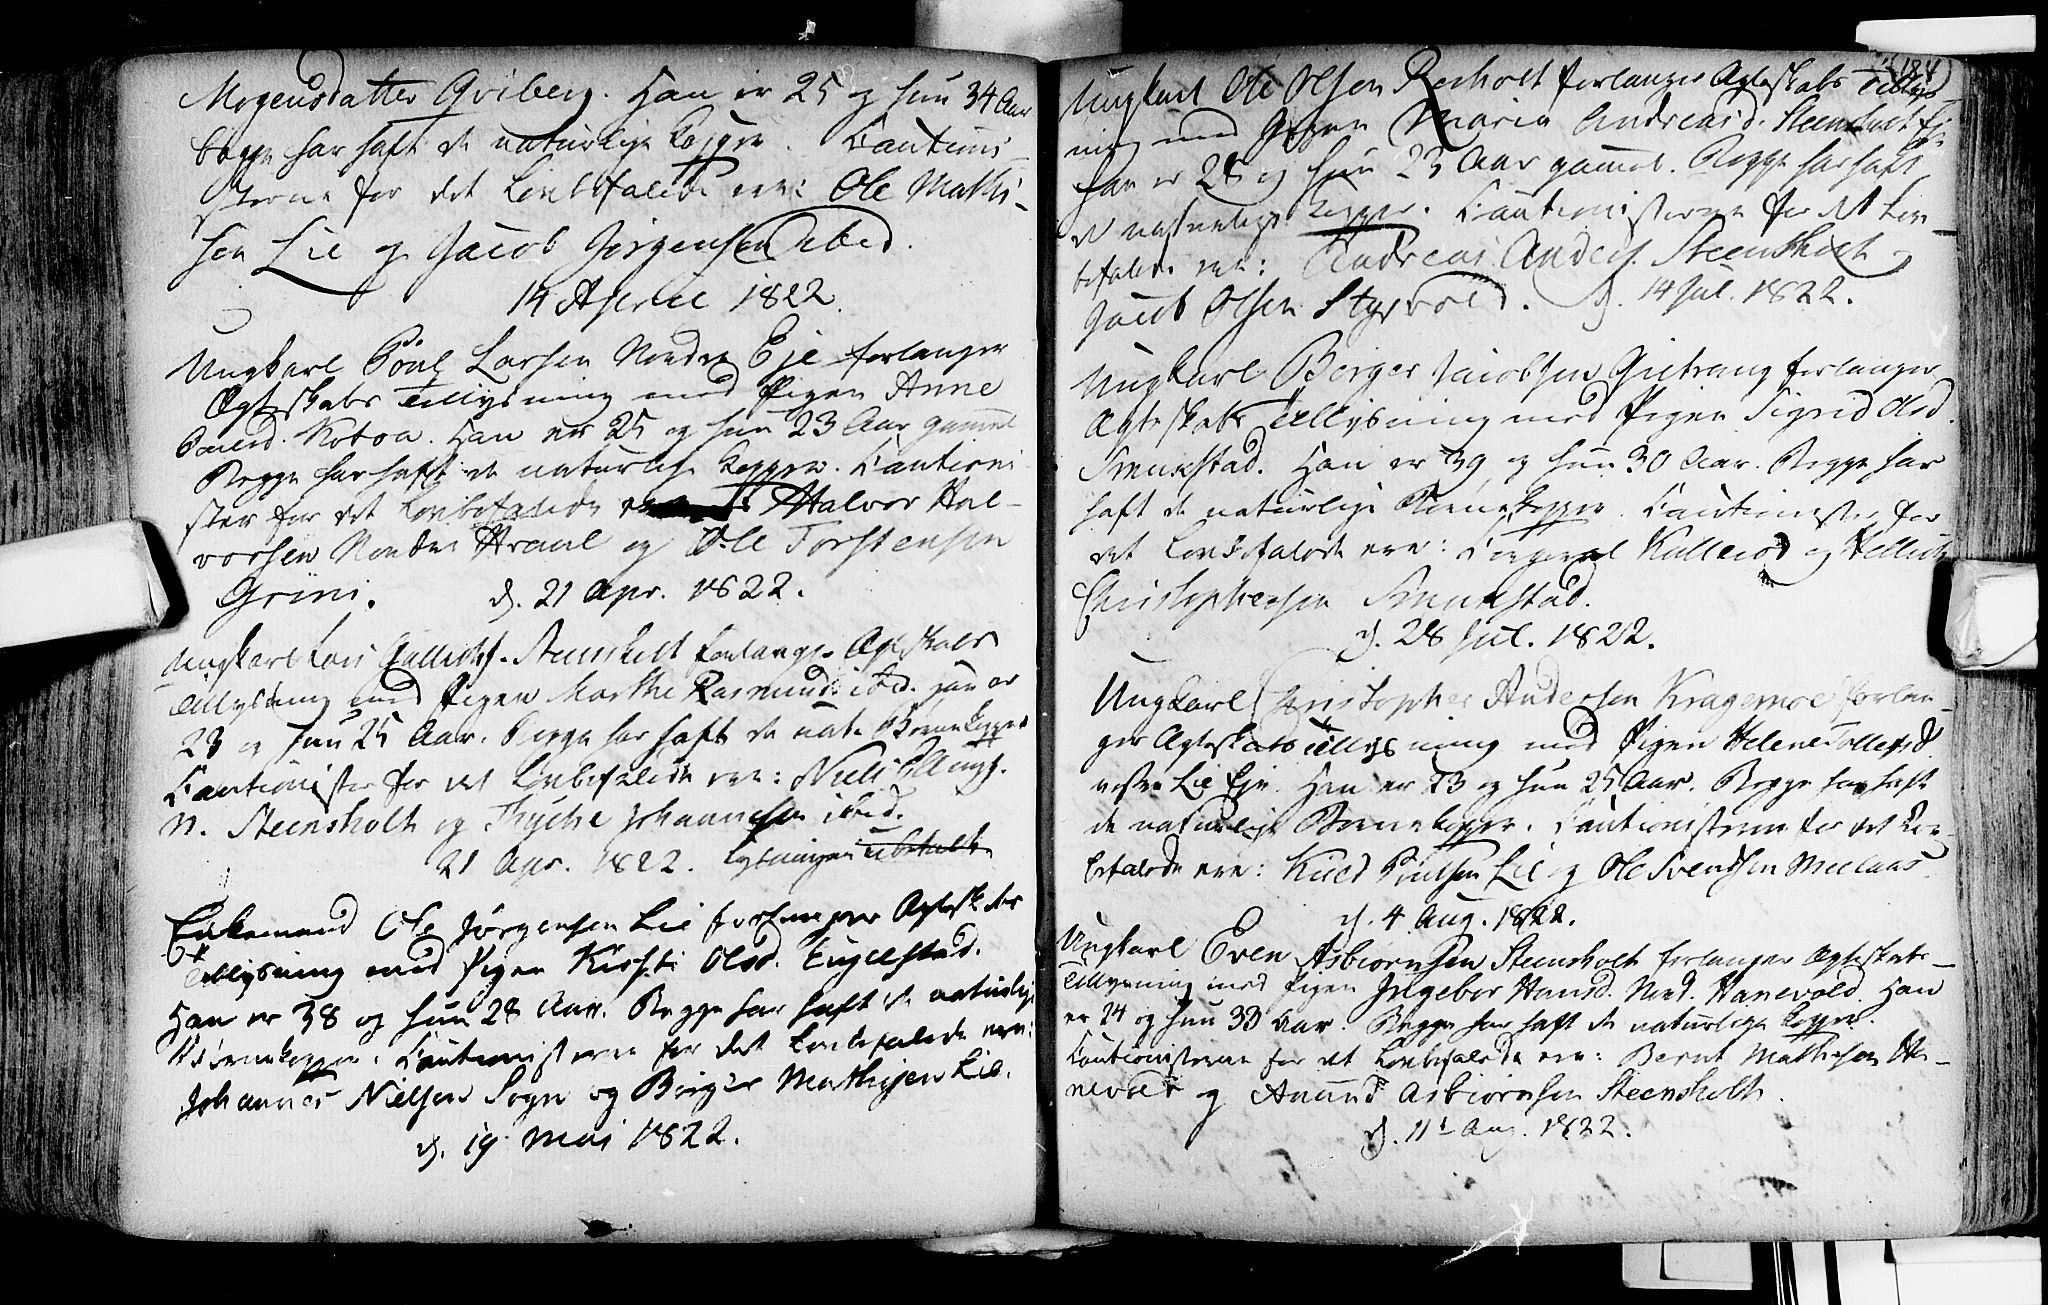 Mogensdatter Gviberg. Han er 25 og hun 34 Aar
begge har haft de naturlige Kopper. Cautioni-
sterne for det Lovbefalede ere: Ole Mathi-
sen Lie og Jacob Jørgensen ibid.
14 April 1822.
Ungkarl Poul Larsen Nordre Eje forlanger
Ægteskabs Tillysning med Pigen Anne
Poulsd. Kotoa. Han er 25 og hun 23 Aar gammel
Begge har haft de naturlige Kopper. Cautioni-
ster for det Lovbefalede ere Halvor Hal-
vorsen Nordre og Ole Torstensen
Grini. d. 21 Apr. 1822.
Ungkarl Lars Steensholt forlanger Ægteskabs
Tillysning med Pigen Marthe Rasmusd. ibid. Han er
23 og hun 25 Aar. Begge har haft de nat. Børnekopper
Cautionister for det Lovbefalede ere: Niels
N. Steensholt og Johannesen ibid.
21 Apr. 1822. Lysningen ubetalt.
Enkemand Ole Jørgensen Lie forlanger Ægteskabs
Tillysning med Pigen Kirsti Olsd. Engelstad.
Han er 38 og hun 28 Aar. Begge har haft de naturlige
Børnekopper. Cautionisterne for det Lovbefalede ere:
Johannes Nielsen Sogn og Birger Mathisen Lie.
d. 19 Mai 1822.
184
Ungkarl Ole Olsen Reeholt forlanger Ægteskabs Tillys-
ning med Pigen Maria Andreasd. Steensholt Eje
Han er 28 og hun 23 Aar gammel. Begge har haft
de naturlige Kopper. Cautionisterne for det Lov-
befalede ere: Andreas Anders. Steensholt og
Jacob Olsen Styrvold. d. 14 Jul. 1822.
Ungkarl Berger Jacobsen Gietrang forlanger
Ægteskabs Tillysning med Pigen Sigrid Olsd.
Smukestad. Han er 39 og hun 30 Aar. Begge har
haft de naturlige Børnekopper. Cautionister for
det Lovbefalede ere: Corporal Kullerød og
Christophersen Smukestad.
d. 28 Jul. 1822.
Ungkarl Christopher Andersen Kragemoe forlan-
ger Ægteskabs Tillysning med Pigen Helene Tollefsd
vestre Lie Eje. Han er 23 og hun 25 Aar. Begge har haft
de naturlige Børnekopper. Cautionisterne for det Lov-
befalede ere: Knud Poulsen Lie og Ole Svendsen Meelaas
d. 4 Aug. 1822.
Ungkarl Even Asbiørnsen Steensholt forlanger Ægteskabs-
Tillysning med Pigen Ingebor Hansd. Nord. Hanevold. Han
er 24 og hun 30 Aar. Begge har haft de naturlige Kopper.
Cautionisterne for det Lovbefalede ere: Bernt Mathisen Ha-
nevold og Anund Asbiørnsen Steensholt.
d. 11 Aug. 1822.